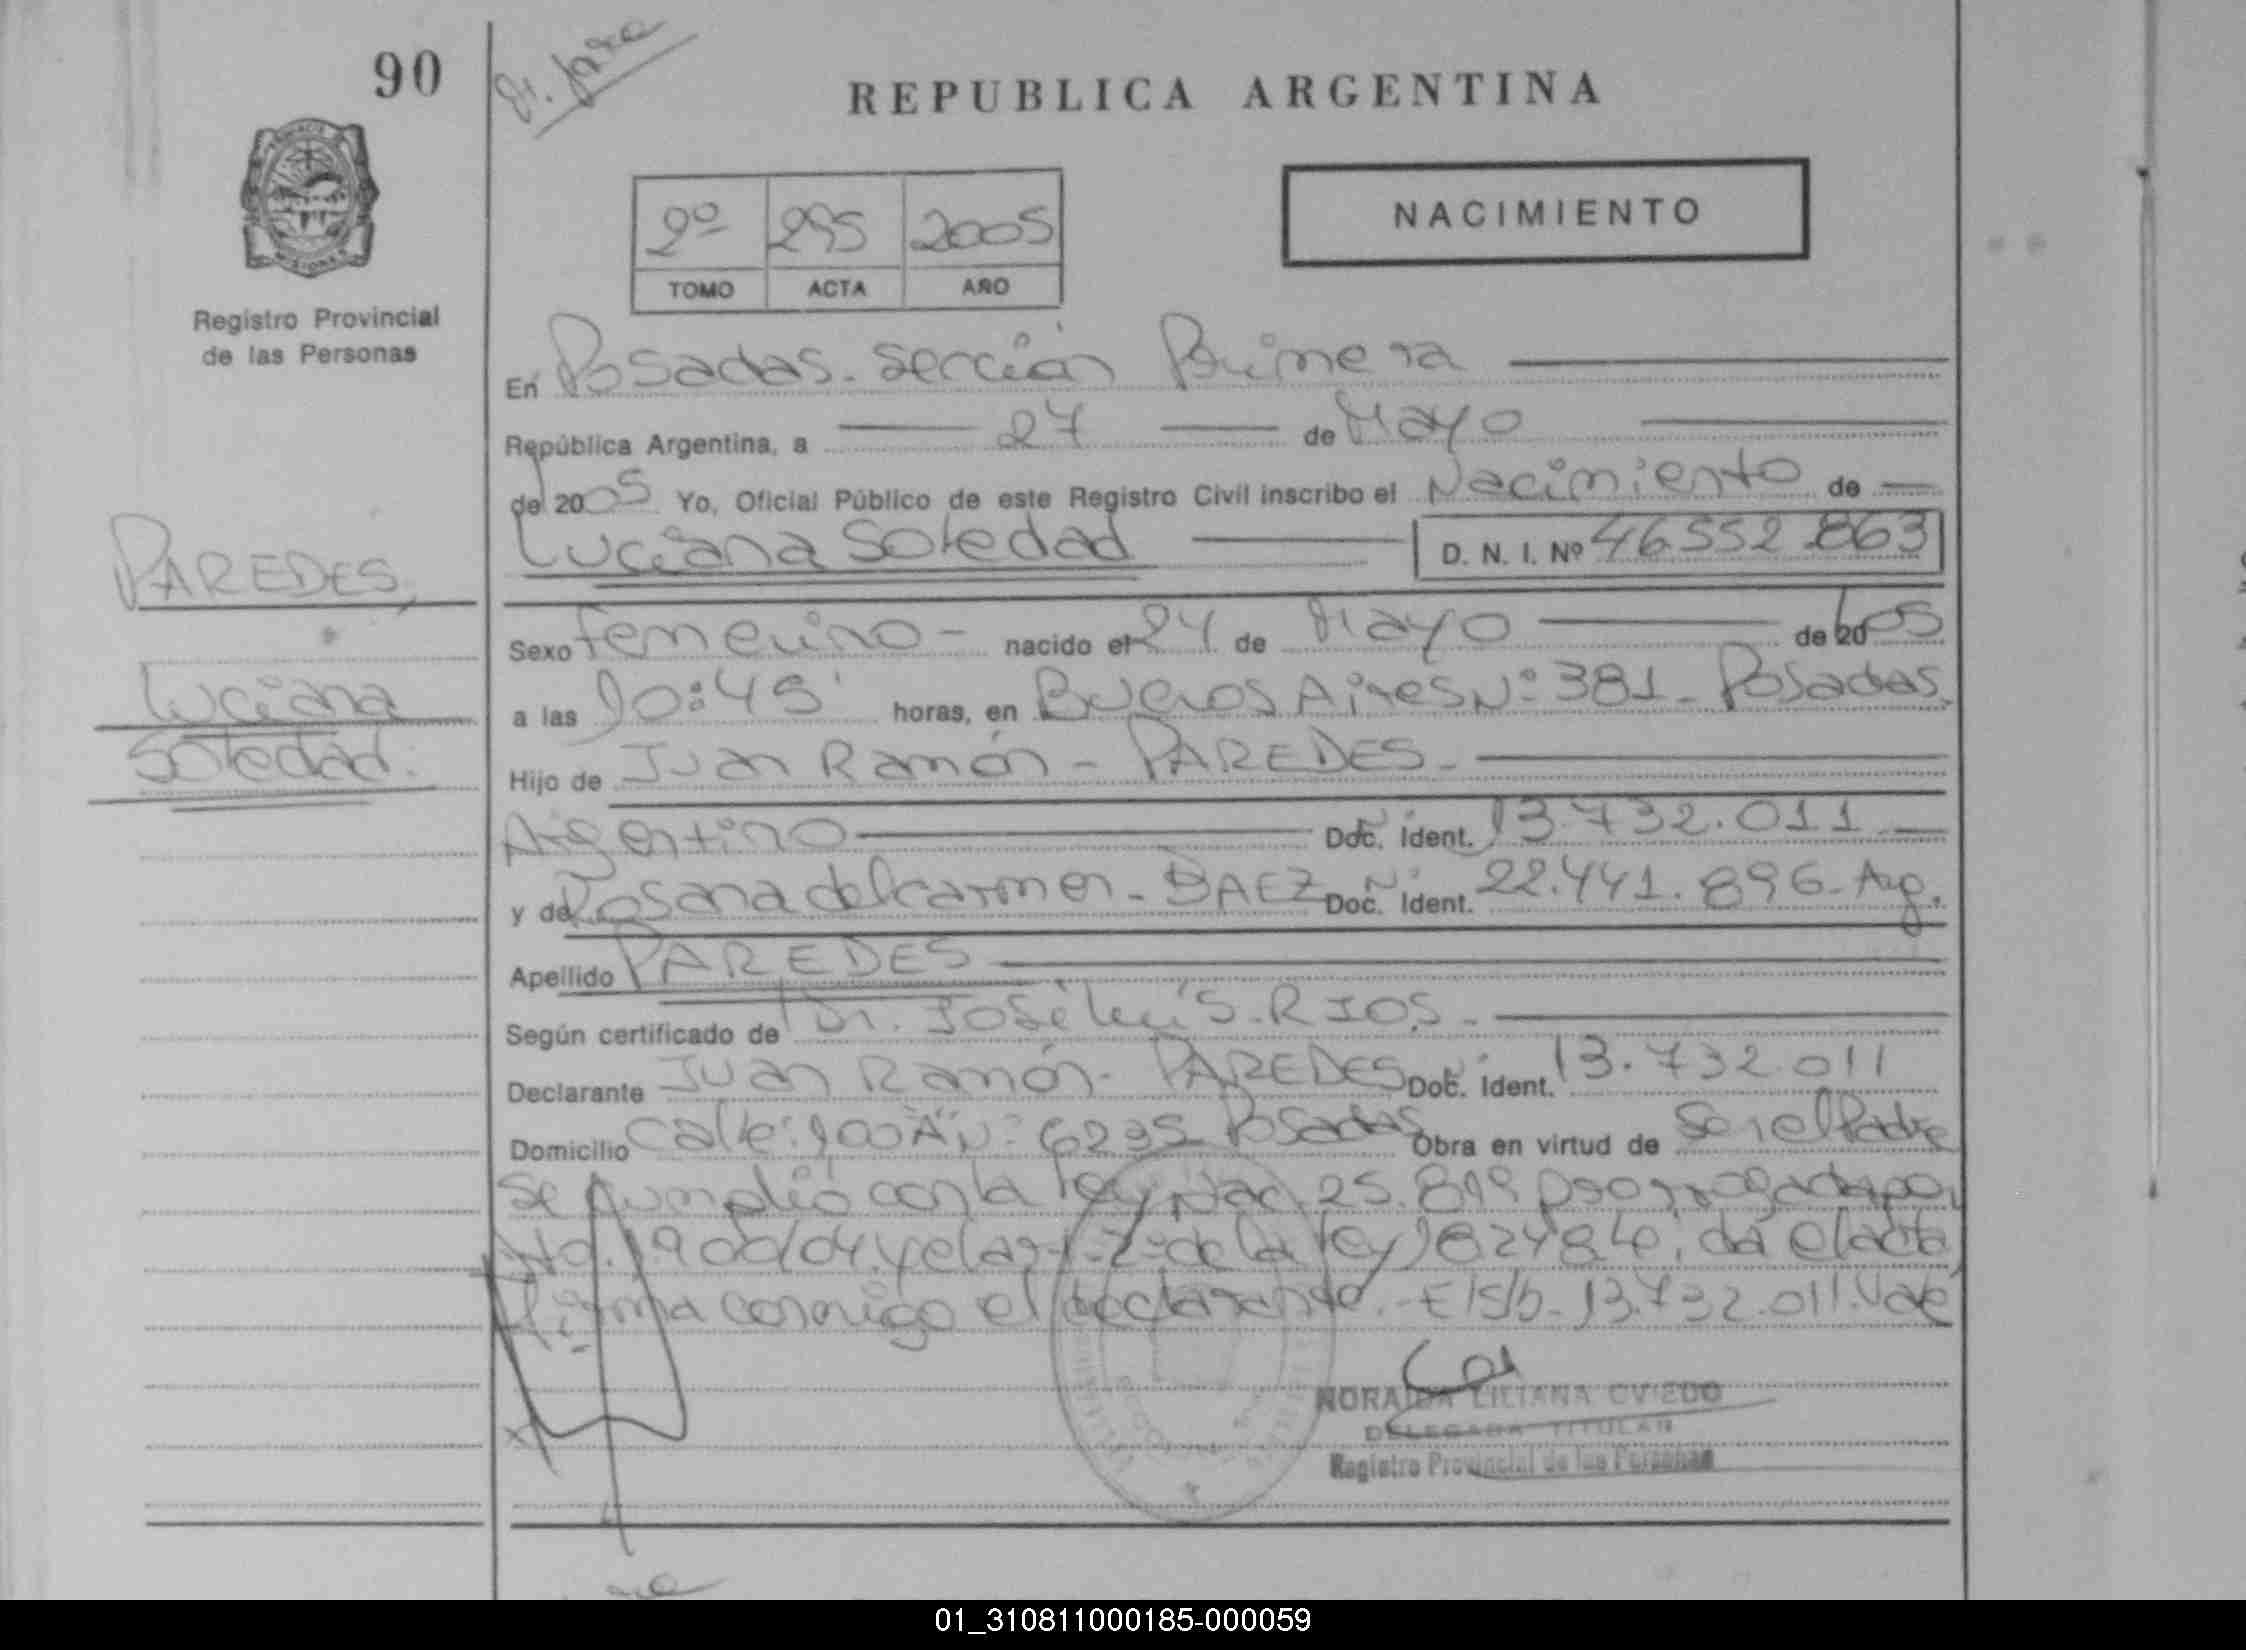 90
REPUBLICA ARGENTINA
2º 295 2005
TOMO ACTA AÑO
NACIMIENTO
MISIONES
Registro Provincial
de las Personas
En Posadas. sección Primera
República Argentina, a 27 de Mayo
de 2005 Yo, Oficial Público de este Registro Civil inscribo el Nacimiento de
Luciana Soledad D. N. I. Nº 46552.863
PAREDES,
Luciana
Soledad.
Sexo femenino - nacido el 24 de Mayo de 2005
a las 10:45' horas, en Buenos Aires Nº: 381 - Posadas.
Hijo de Juan Ramón - PAREDES -
Argentino Doc. Ident. 13.732.011
y de Rosana del carmen - BAEZ Doc. Ident. 22.441.896 - Arg.
Apellido PAREDES
Según certificado de Dr. José Luis - RIOS -
Declarante Juan Ramón - PAREDES Doc. Ident. 13.732.011
Domicilio calle: 100 "A" Nº: 6295 Posadas Obra en virtud de Ser el Padre
Se cumplió con la ley Nac. 25.819 prorrogada por
1900/04. y el art. 2º de la ley 18248 el acta
firma conmigo el declarante. - E/S/b - 13.732.011. Vale
NORAIDA LILIANA OVIEDO
DELEGADA TITULAR
Registro Provincial de las Personas
01_310811000185-000059